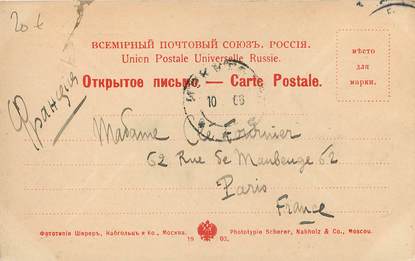 20 €
ВСЕМІРНЫЙ ПОЧТОВЫЙ СОЮЗЪ. РОССІЯ.
Union Postale Universelle Russie.
Открытое письмо. — Carte Postale.
мѣсто
для
марки.
Франція
10
Madame Fournier
62 Rue de Maubeuge 62
Paris
France
Фототипія Шереръ, Набгольцъ и Ко., Москва.
19 03.
Phototypie Scherer, Nabholz & Co., Moscou.